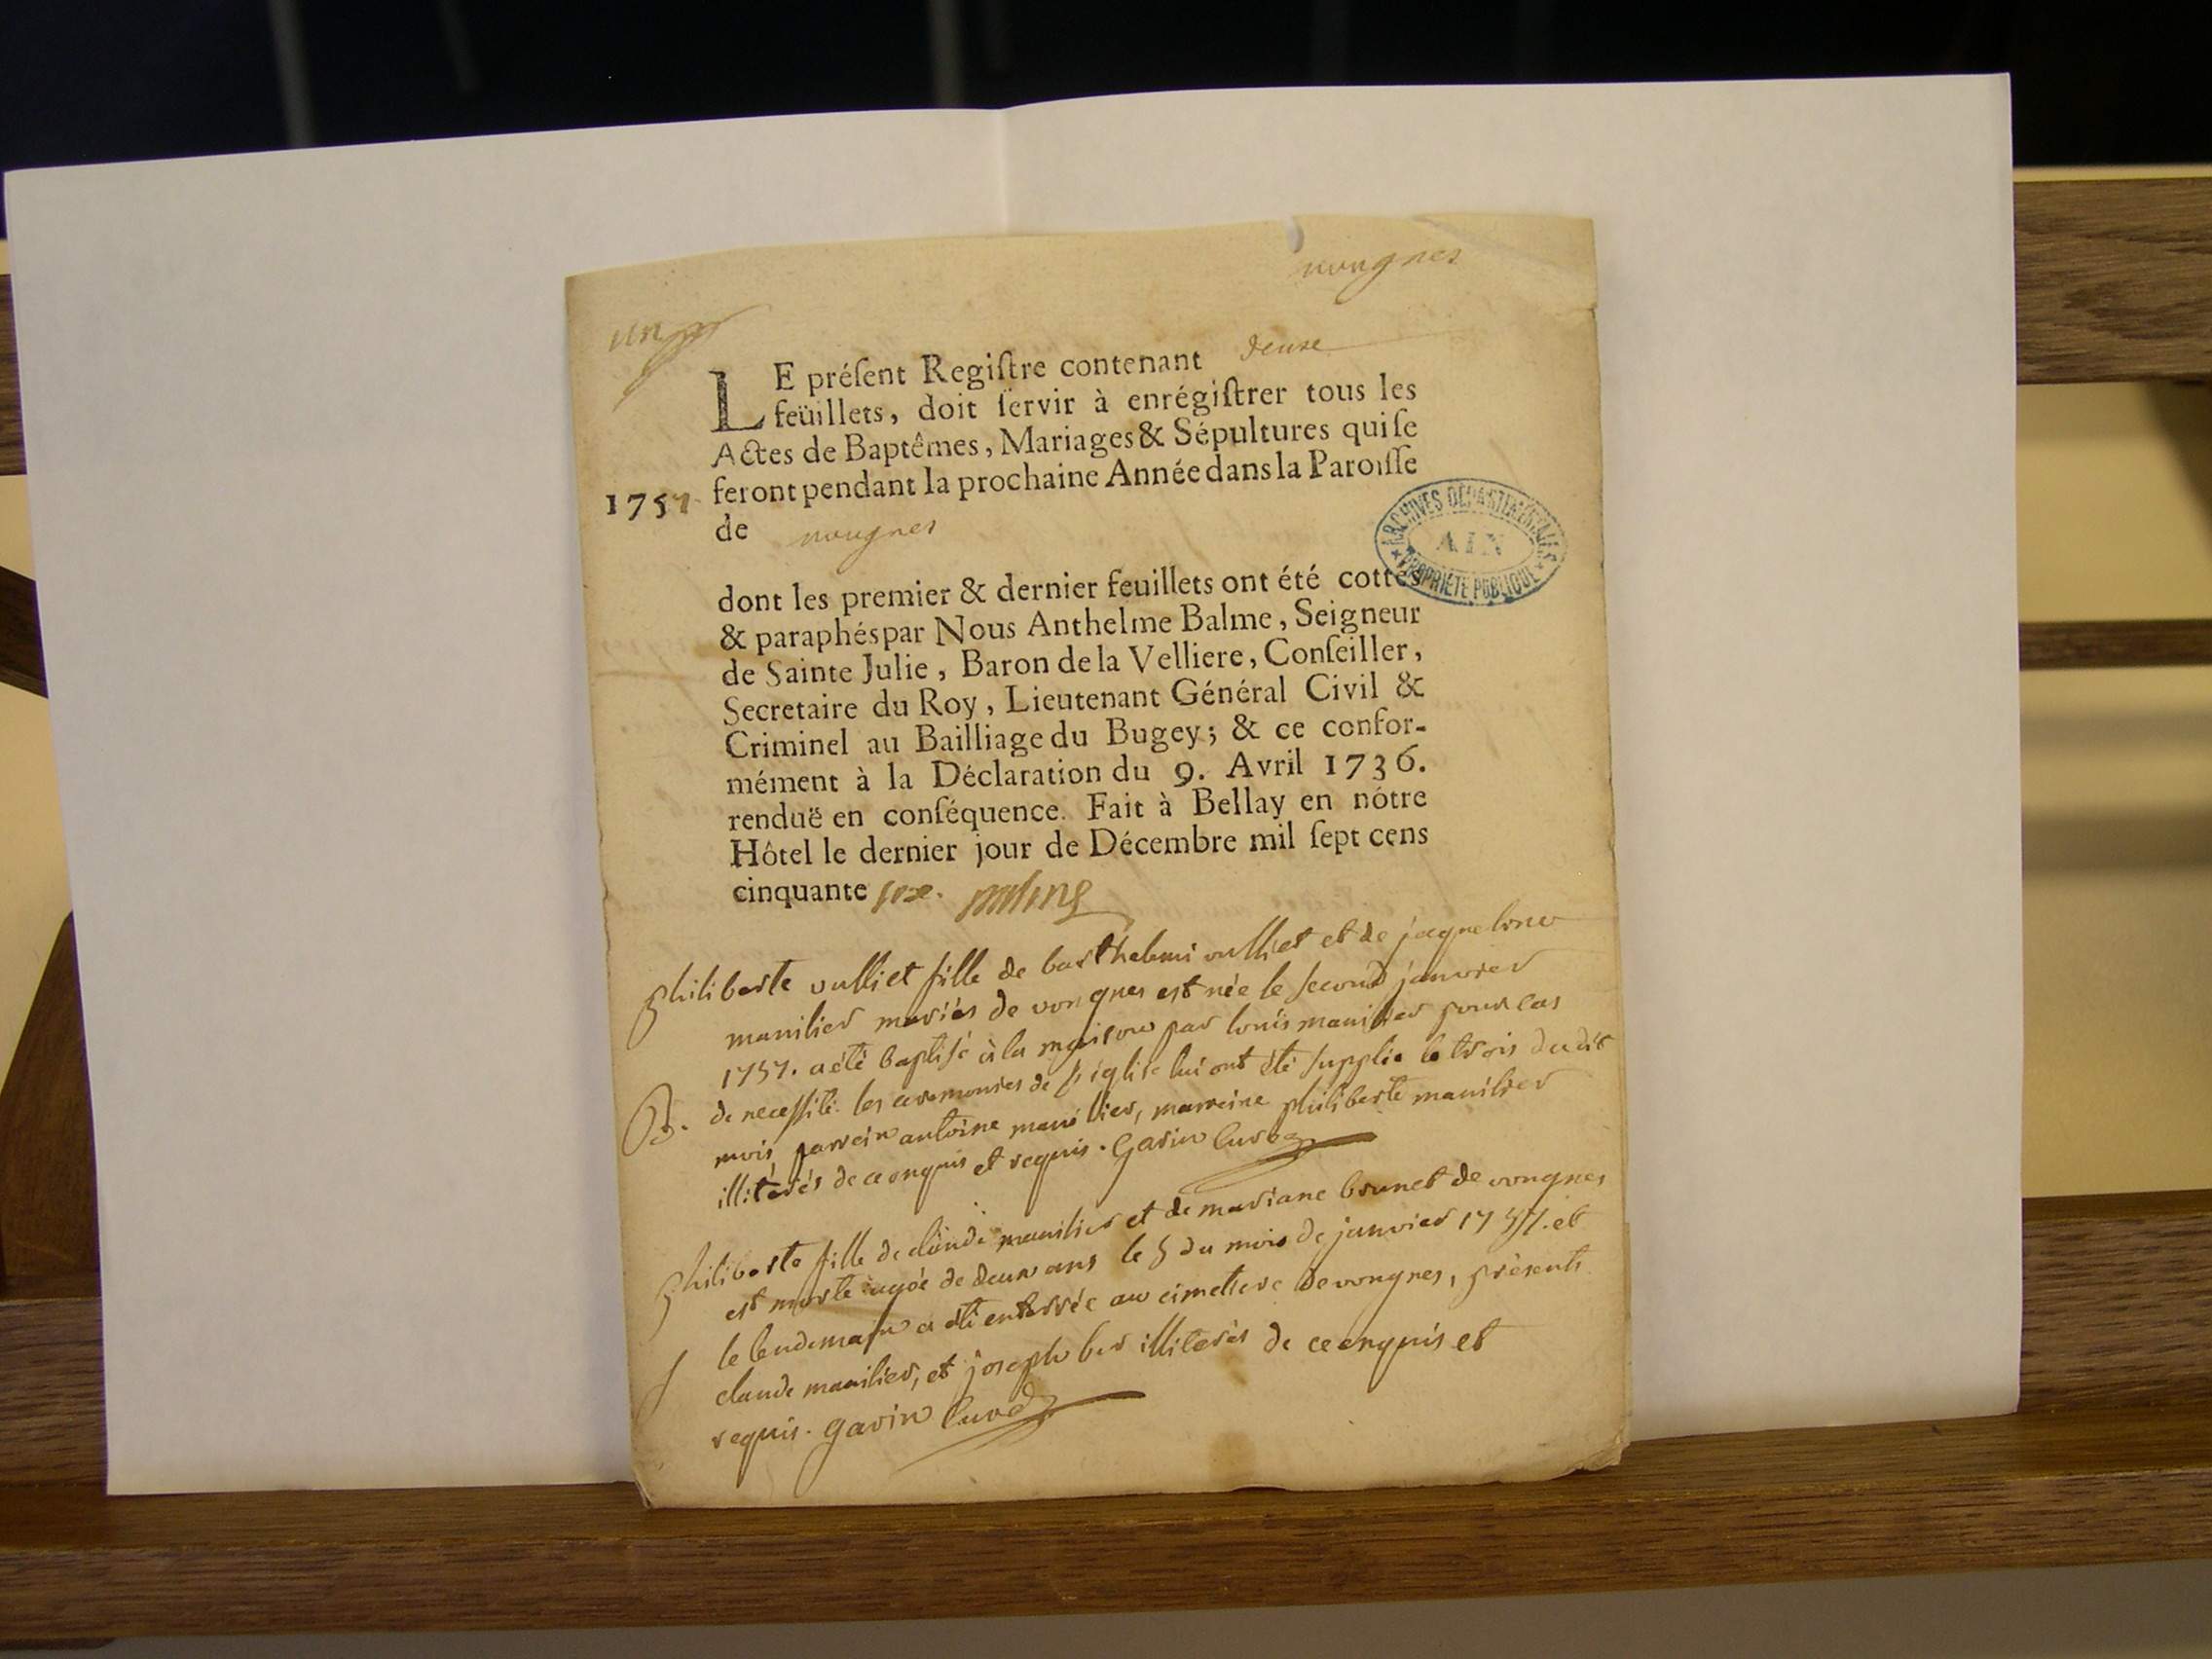 vongnes
un
LE préſent Regiſtre contenant deuxe
feüillets, doit ſervir à enrégiſtrer tous les
Actes de Baptêmes, Mariages & Sépultures qui ſe
1757 feront pendant la prochaine Année dans la Paroiſſe
de vongnes
ARCHIVES DÉPARTEMENTALES
AIN
PROPRIÉTÉ PUBLIQUE
dont les premier & dernier feuillets ont été cottés
& paraphés par Nous Anthelme Balme, Seigneur
de Sainte Julie, Baron de la Velliere, Conſeiller,
Secretaire du Roy, Lieutenant Général Civil &
Criminel au Bailliage du Bugey; & ce confor-
mément à la Déclaration du 9. Avril 1736.
renduë en conſéquence. Fait à Bellay en nôtre
Hôtel le dernier jour de Décembre mil ſept cens
cinquante six.
philiberte vulliet fille de barthelemi vulliet et de jaquelone
manilier mariés de vongnes est née le second janvier
1757. a été baptisé à la maison par louis manilier pour cas
B. de necessité. les ceremonies de l'eglise lui ont été supplie le trois dudit
mois parrein antoine manilier, marreine philiberte manilier
illiterés de ce enquis et requis. Garin Curé
philiberte fille de claude manilier et de mariane brunet de vongnes
est morte agée de deux ans le 5 du mois de janvier 1757. et
le lendemain a été enterrée au cimetiere de vongnes, présents
S claude manilier, et joseph ber illiterés de ce enquis et
requis. garin Curé